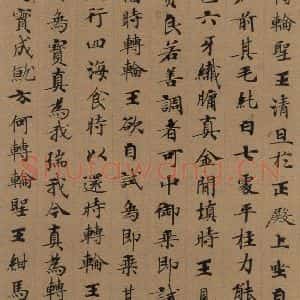 轉輪聖王清旦於正殿上坐自
前其毛純白七處平柱力能
色六牙纖𦟛真金間填時王見
賢良若善調者可中御乘即
時轉輪王欲自試象即乘其
行四海食時以還時轉輪王
象寶真為我瑞我今真為轉
寶成就 方何轉輪聖王紺馬
Shufawang.cn